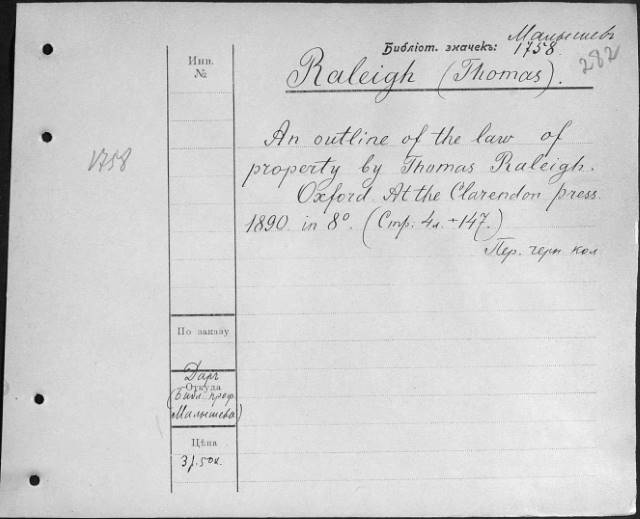 Малышевъ
Библіот. значекъ: 1758.
282
Инв.
№
Raleigh (Thomas).
An outline of the law of
property by Thomas Raleigh.
Oxford. At the Clarendon press.
1890. in 8°. (Стр: 4л. + 147.)
Пер. черн. кол
1758
По заказу
Даръ
Откуда
(Библ. проф.
Малышева)
Цѣна
3р. 50к.